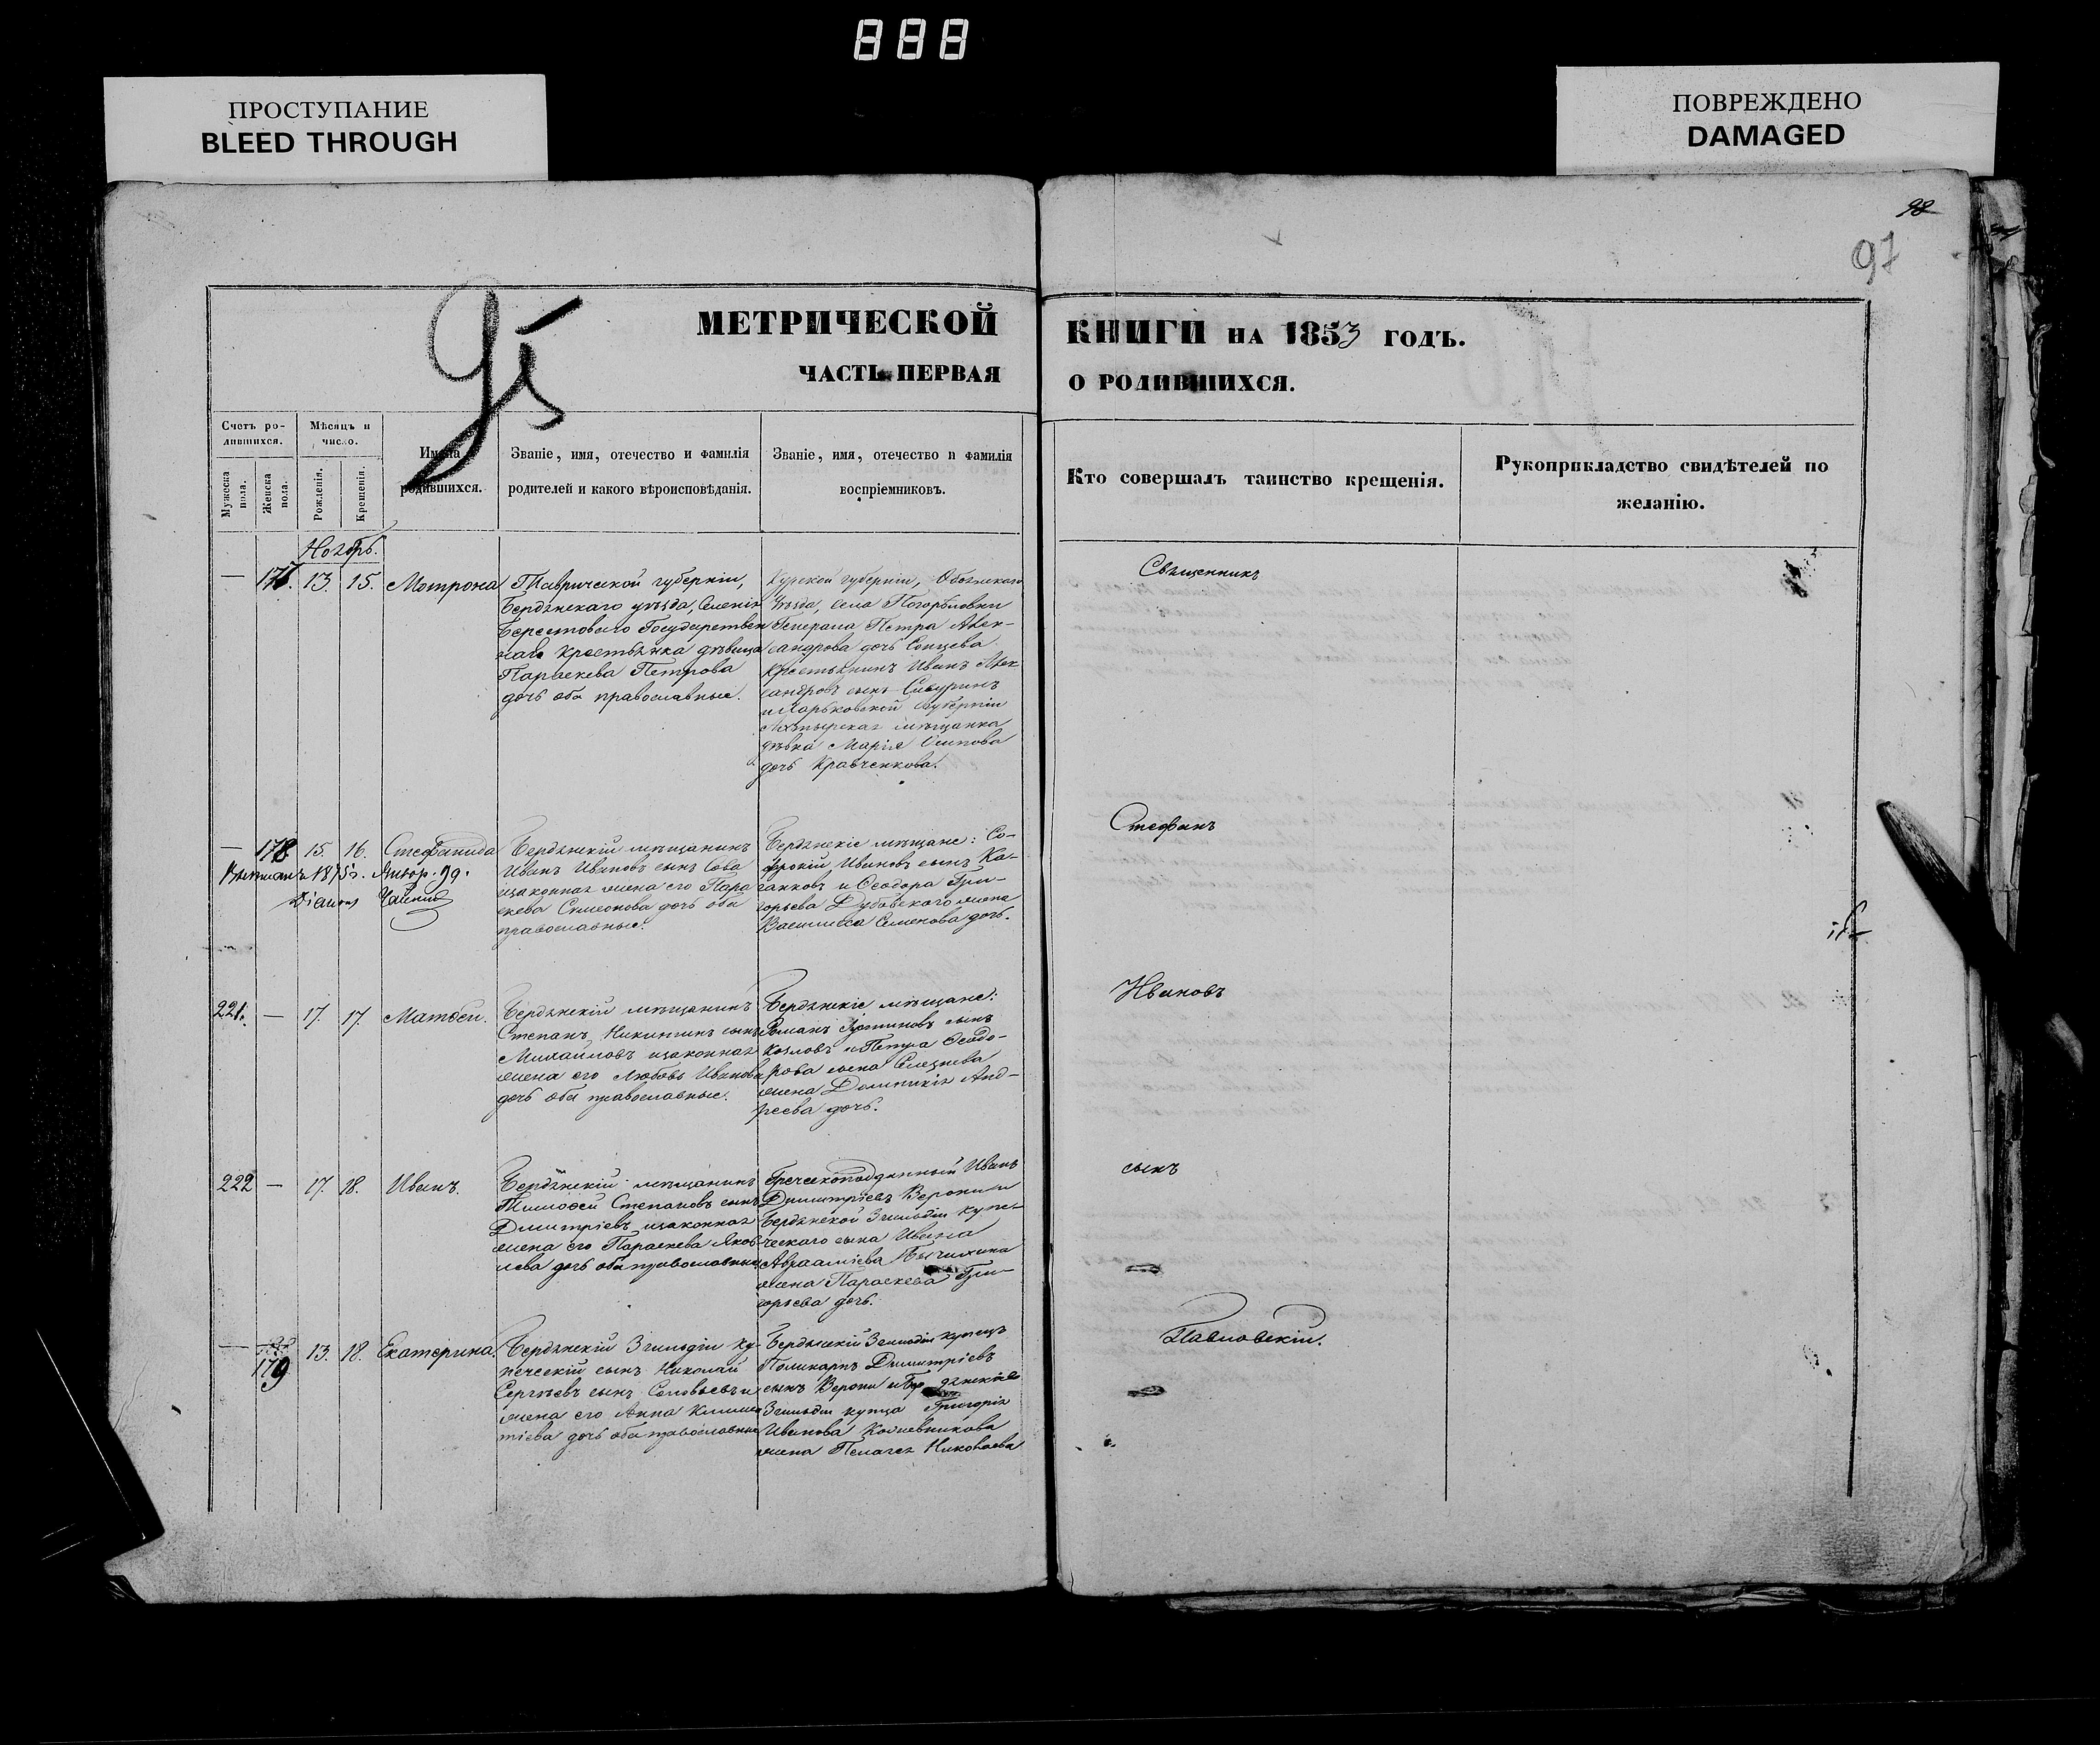 888
ПРОСТУПАНИЕ
BLEED THROUGH
ПОВРЕЖДЕНО
DAMAGED
98
97
МЕТРИЧЕСКОЙ
ЧАСТЬ ПЕРВАЯ
КНИГИ НА 1853 ГОДЪ.
О РОДИВШИХСЯ.
Счетъ ро-
дившихся.
Мѣсяцъ и
число.
Мужеска
пола.
Женска
пола.
Рожденія.
Крещенія.
Имена
родившихся.
Званіе, имя, отечество и фамилія
родителей и какого вѣроисповѣданія.
Званіе, имя, отечество и фамилія
воспріемниковъ.
Кто совершалъ таинство крещенія.
Рукоприкладство свидѣтелей по
желанію.
— 13. 15. Мотрона
Таврической губерніи,
Бердянскаго уѣзда, Селенія
Берестоваго Государствен
наго крестьянка дѣвица
Параскева Петрова
дочь оба православные.
Курской губерніи, Обоянскаго
Уѣзда, села Погорѣловки
Генерала Петра Алек-
сандрова дочь Сонцева
крестьянинъ Иванъ Алек
сандровъ сынъ
и Харьковской губерніи
Ахтырская мѣщанка
дѣвка Марія Осипова
дочь Кравченкова.
— 178 15. 16. Стефанида
Бердянскій мѣщанинъ
Иванъ Ивановъ сынъ Сова
изаконная жена его Пара
скева Симеонова дочь оба
православные.
Бердянскіе мѣщане: Со-
фроній Ивановъ сынъ Ка-
ганковъ и Ѳеодора Гри-
горьева Дубовскаго жена
Василиса Семенова дочь.
221. — 17. 17. Матѳей.
Бердянскій мѣщанинъ
Степанъ Никитинъ сынъ
Михайловъ изаконная
жена его Любовь Иванова
дочь оба православные.
Бердянскіе мѣщане:
Романъ Устиновъ сынъ
Козловъ и Петра Ѳеодо-
рова сына Селезнева
жена Домникія Анд-
реева дочь.
222 — 17. 18. Иванъ.
Бердянскій мѣщанинъ
Тимоѳей Степановъ сынъ
Димитріевъ изаконная
жена его Параскева Яков
лева дочь оба православные
Греческоподданный Иванъ
Димитріевъ Верони и
Бердянской 3 гильдіи купе-
ческаго сына Ивана
Авраамієва
жена Параскева Гри-
горьева дочь.
— 179 13. 18. Екатерина.
Бердянскій 3 гильдіи ку-
печескій сынъ Николай
Сергѣевъ сынъ Соловьевъ и
жена его Анна Климен
тіева дочь оба православные
Бердянскій 3 гильдіи купецъ
Поликарпъ Димитріевъ
сынъ Верони и Бердянскіе
3 гильдіи купца Григорія
Иванова Кожевникова
жена Пелагея Николаева
Священникъ
Стефанъ
Ивановъ
сынъ
Павловскій.